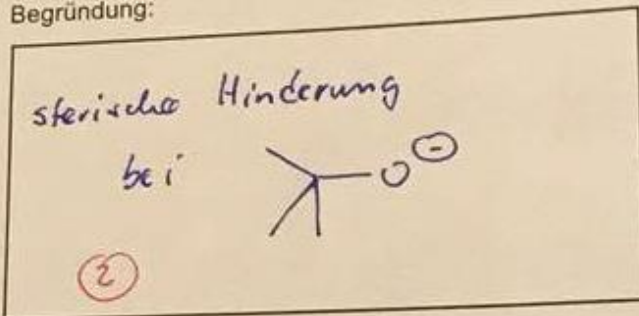 Begründung:
sterische Hinderung
bei
O⊖
2